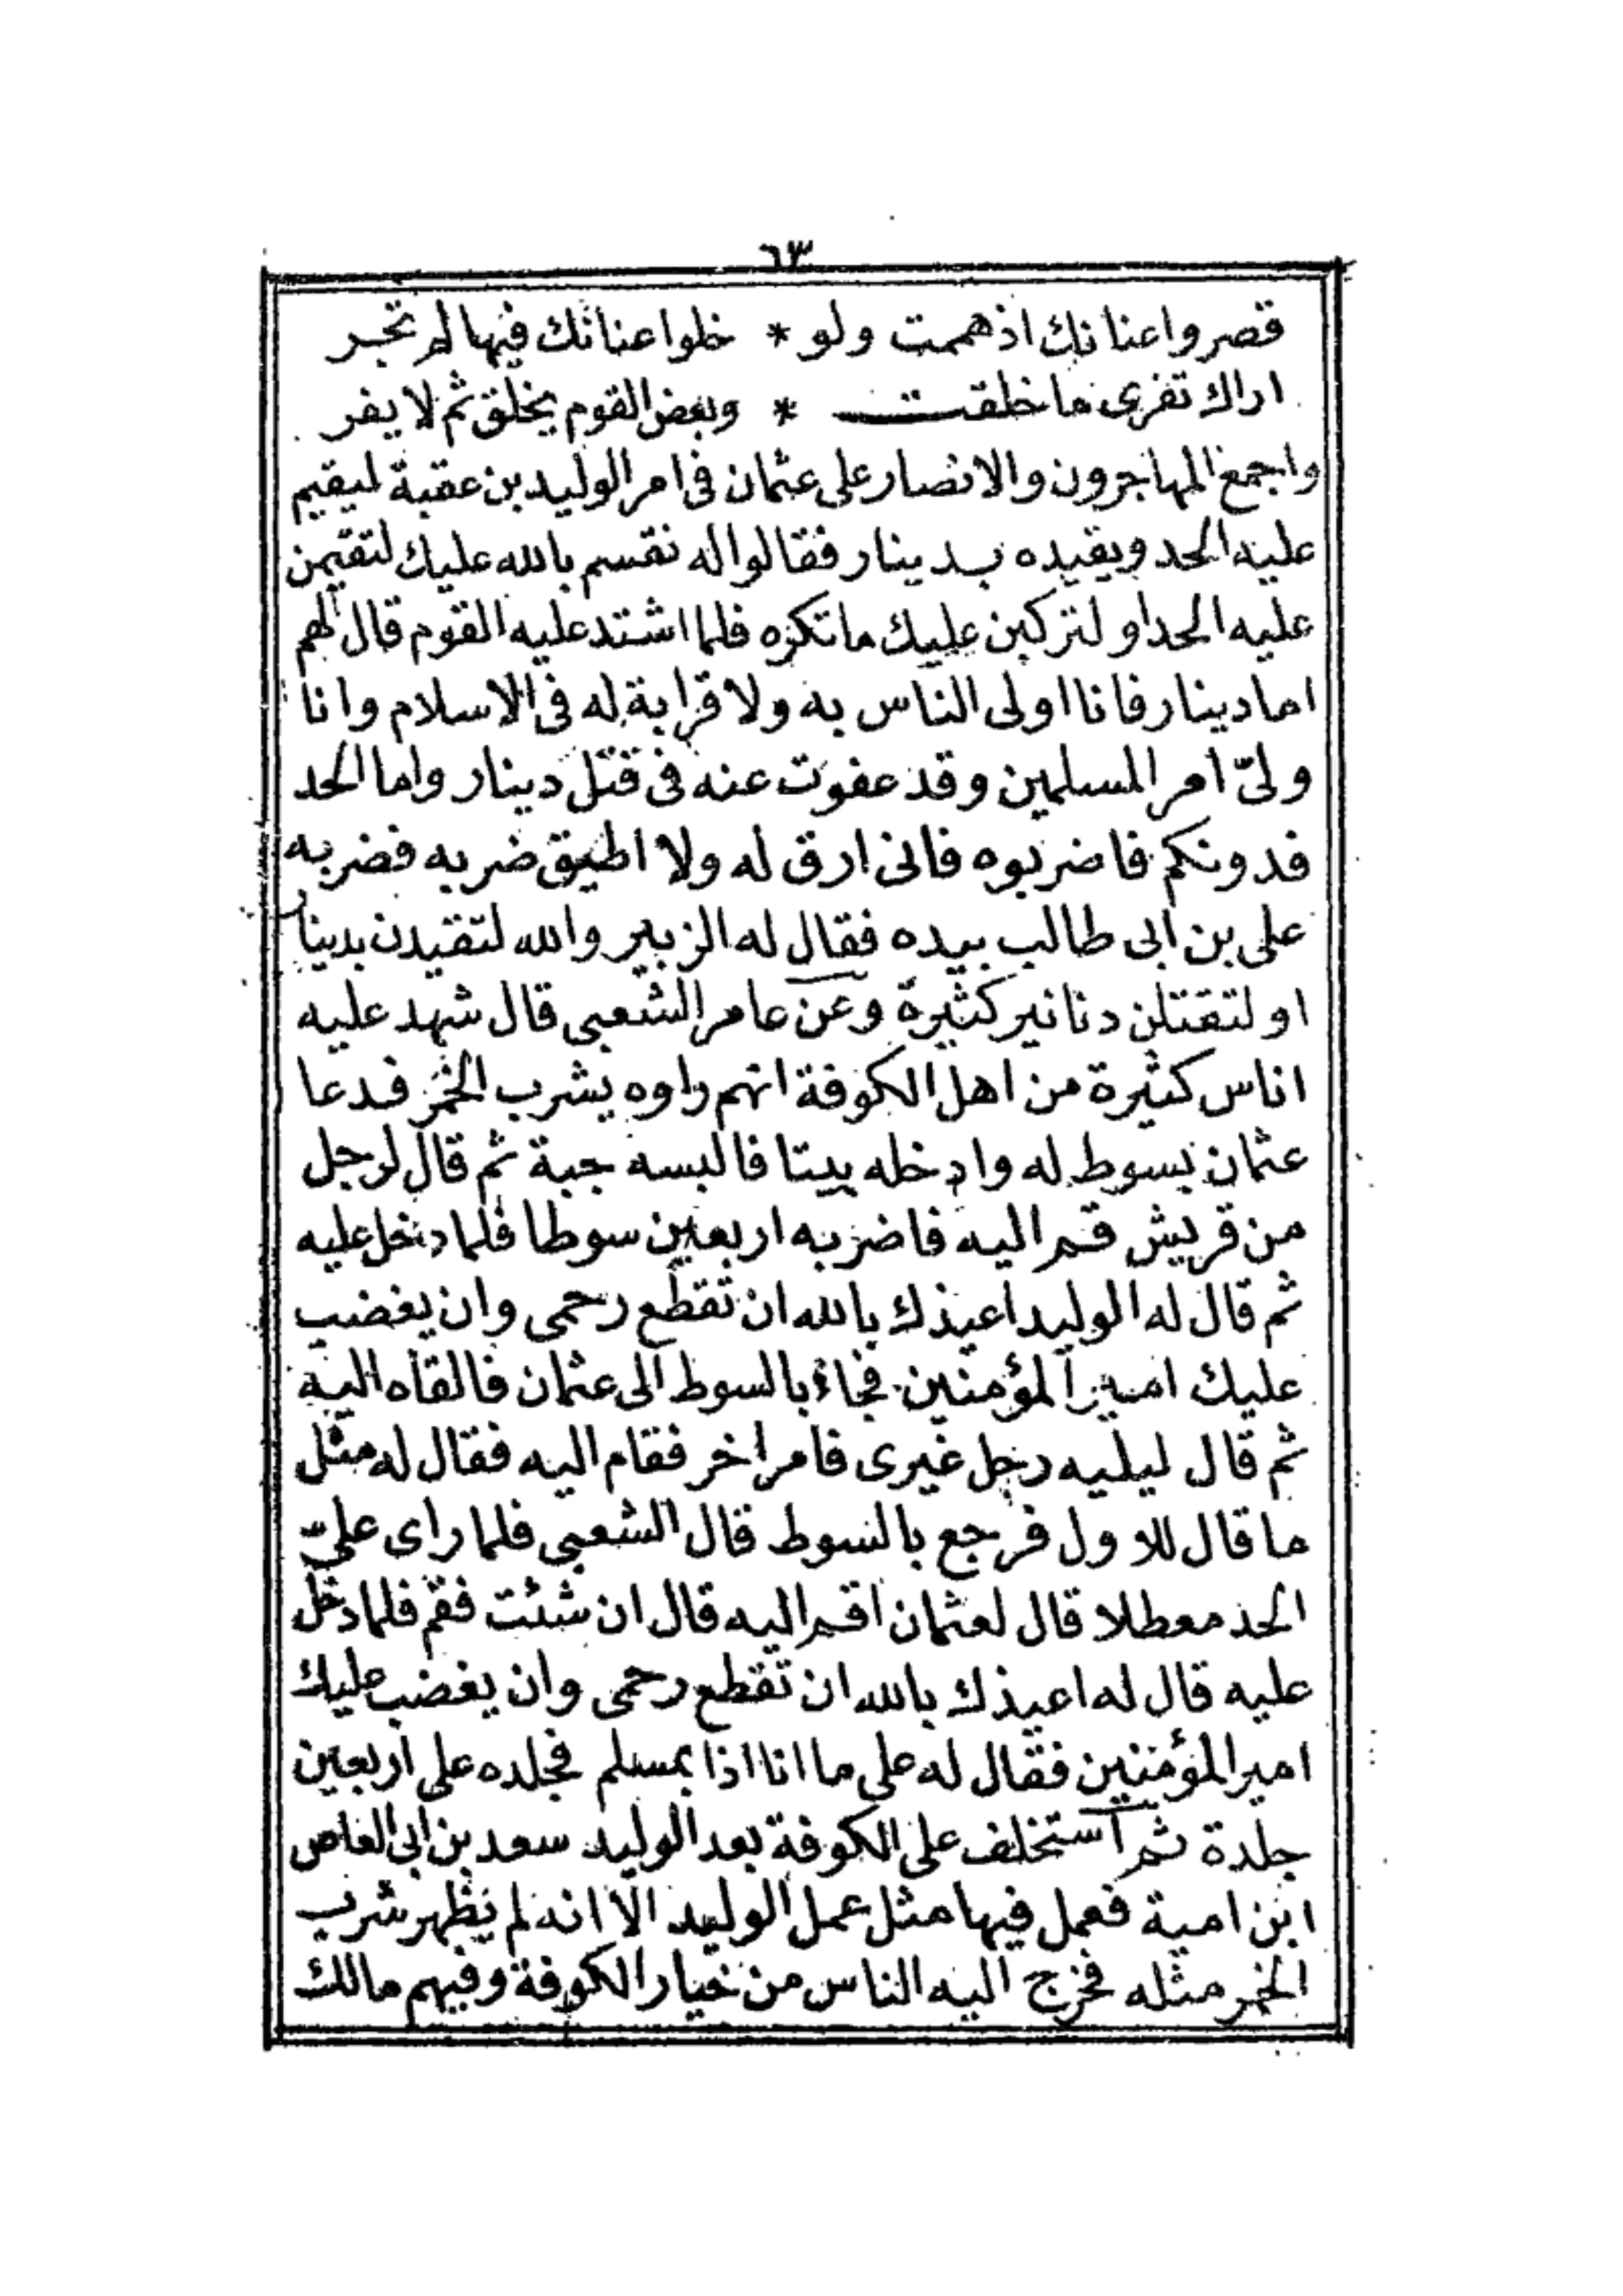 ٦٣
قصروا عنانك اذ هممت ولو * خلوا عنانك فيها لم تجر
اراك تفرى ما خلقت * وبعض القوم يخلق ثم لا يفر
واجمع المهاجرون والانصار على عثمان فى امر الوليد بن عقبة ليقيم
عليه الحد ويقيده بدينار فقالوا له نقسم بالله عليك لتقيمن
عليه الحد او لتركبن عليك ما تكره فلما اشتد عليه القوم قال لهم
اما دينار فانا اولى الناس به ولا قرابة له فى الاسلام وانا
ولىّ امر المسلمين وقد عفوت عنه فى قتل دينار واما الحد
فدونكم فاضربوه فانى ارق له ولا اطيق ضربه فضربه
على بن ابى طالب بيده فقال له الزبير والله لتقيدن بدينار
او لتقتلن دنانير كثيرة وعن عامر الشعبى قال شهد عليه
اناس كثيرة من اهل الكوفة انهم راوه يشرب الخمر فدعا
عثمان بسوط له وادخله بيتا فالبسه جبة ثم قال لرجل
من قريش قم اليه فاضربه اربعين سوطا فلما دخل عليه
ثم قال له الوليد اعيذك بالله ان تقطع رحمى وان يغضب
عليك امير المؤمنين فجاء بالسوط الى عثمان فالقاه اليه
ثم قال ليليه رجل غيرى فامر اخر فقام اليه فقال له مثل
ما قال للاول فرجع بالسوط قال الشعبى فلما راى علىّ
الحد معطلا قال لعثمان اقم اليه قال ان شئت فقم فلما دخل
عليه قال له اعيذك بالله ان تقطع رحمى وان يغضب عليك
امير المؤمنين فقال له على ما انا اذا بمسلم فجلده على اربعين
جلدة ثم استخلف على الكوفة بعد الوليد سعد بن ابى العاص
ابن امية فعمل فيها مثل عمل الوليد الا انه لم يظهر شرب
الخمر مثله فخرج اليه الناس من خيار الكوفة وفيهم مالك